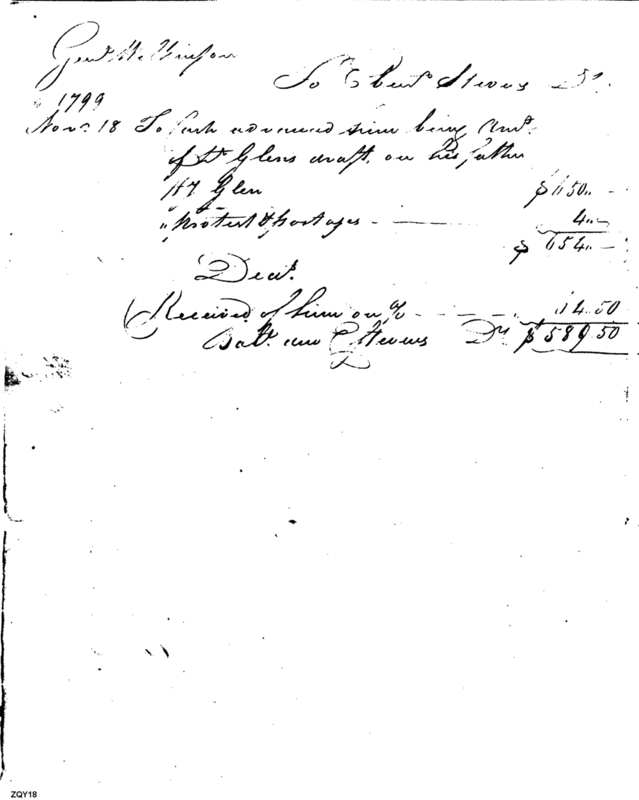 Genl Wilkinson
To Eben Stevens Dr.
1799
Novr. 18 To Cash advanced him being Amt.
of Lt Glens draft, on his father
HJ Glen $650 ..
" Protest & postages - 4 ..
$ 654 .. -
Dedt.
Received of him on % 14.50
Balt. due E Stevens Dr $ 589 50
ZQY18